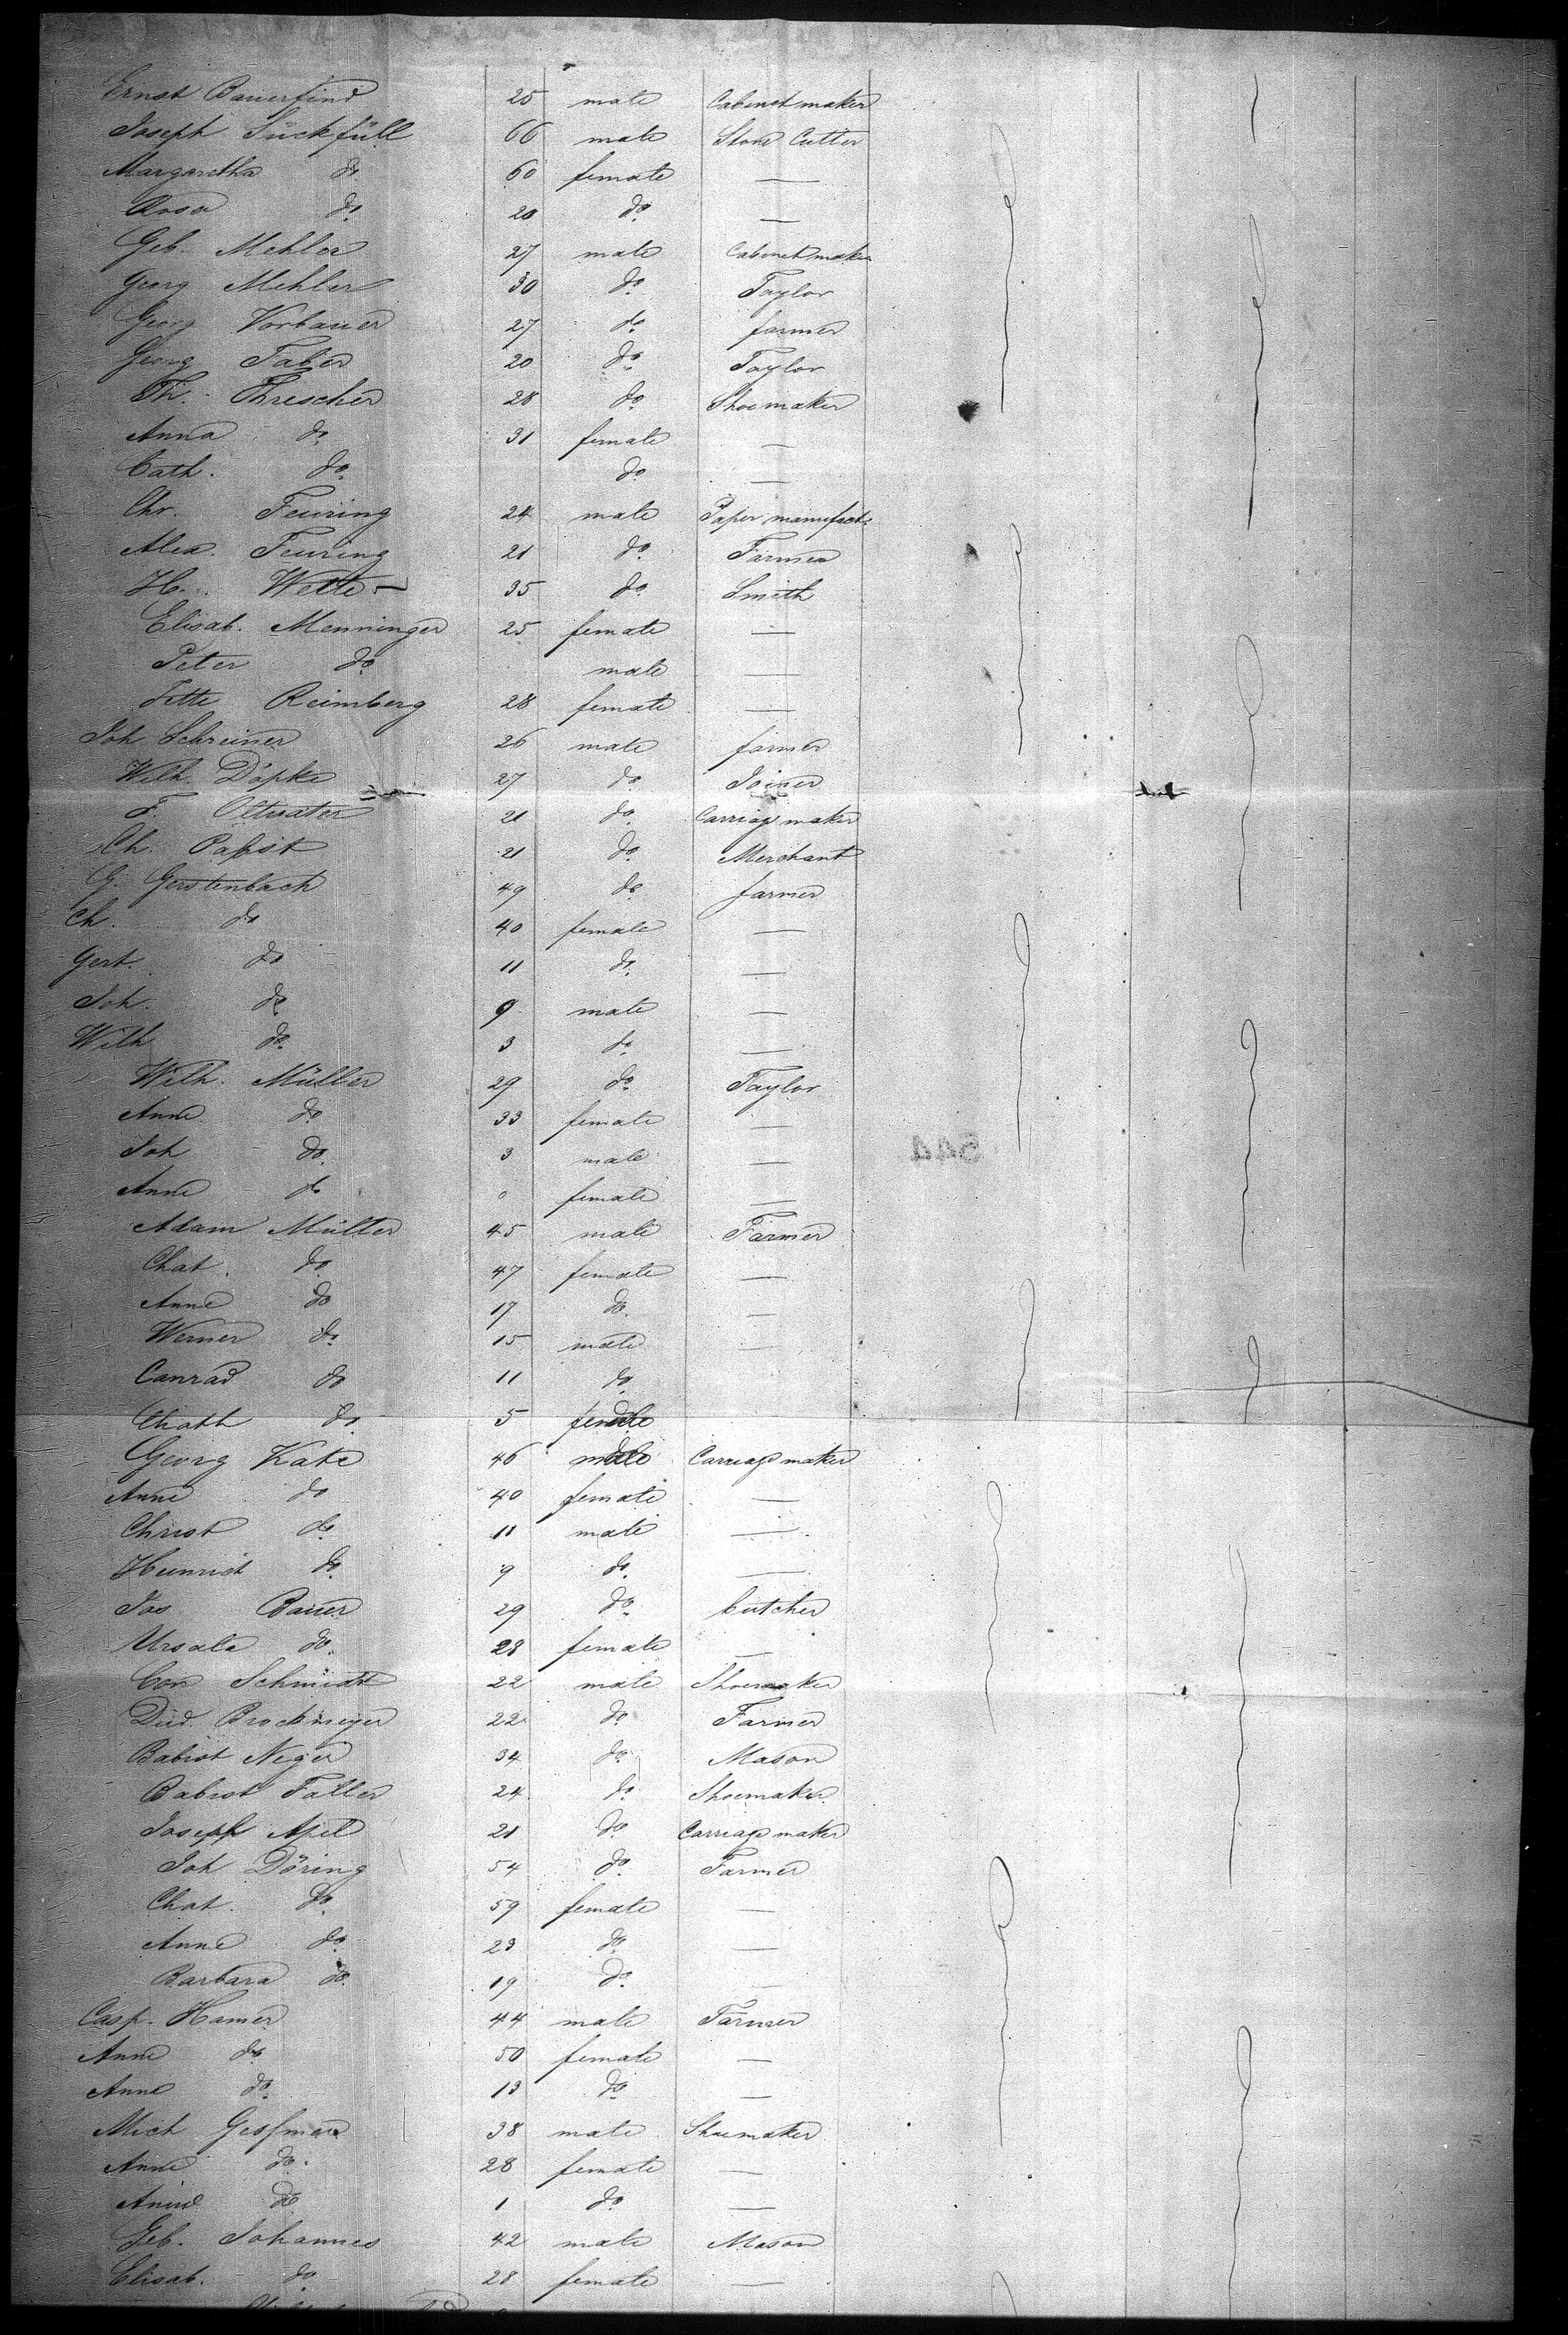 Ernst Bauerfind 25 male Cabinet maker
Joseph Sückfüll 66 male Stone Cutter
Margaretha do 60 female —
Rosa do 20 do —
Geb. Mehler 27 male Cabinet maker
Georg Mehler 30 do Taylor
Georg Vorbauer 27 do farmer
Georg Faber 20 do Taylor
Th. Threscher 28 do Shoemaker
Anna do 31 female —
Cath. do do —
Chr. Feuring 24 male Paper manufact.
Alex. Feuring 21 do Farmer
H. Wette 35 do Smith
Elisab. Menninger 25 female —
Peter do male —
Jette Reimberg 28 female —
Joh Schreiner 26 male farmer
Wilh. Döpke 27 do Joiner
F. 21 do Carriag maker
Ch. Pabst 21 do Merchant
G. Gerstenbach 49 do farmer
Ch. do 40 female —
Gert. do 11 do —
Joh. do 9 male —
Wilh do 3 do —
Wilh. Müller 29 do Taylor
Anne do 33 female —
Joh do 3 male —
Anne do 0 female —
Adam Müller 45 male Farmer
Chat. do 47 female —
Anne do 17 do —
Werner do 15 male —
Conrad do 11 do
Chath do 5 female
Georg Kate 46 male Carriage maker
Anne do 40 female —
Christ do 11 male —
Heinrich do 9 do —
Jos Bauer 29 do butcher
Ursala do 28 female —
Con Schmidt 22 male Shoemaker
Died. Brockmeyer 22 do Farmer
Babist Neger 34 do Mason
Babist Faller 24 do Shoemaker
Joseph Apel 21 do Carriage maker
Joh Döring 54 do Farmer
Chat. do 59 female —
Anne do 23 do —
Barbara do 19 do —
Casp. Hamer 44 male Farmer
Anne do 50 female —
Anne do 13 do —
Mich 38 male Shoemaker
Anne do 28 female —
Anne do 1 do —
Geb. Johannes 42 male Mason
Elisab. do 28 female —